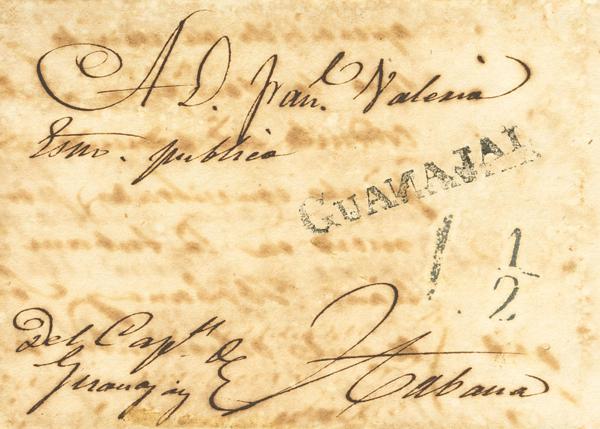 A D. Fran.l Valeria
Essno. publico
GUANAJAI
1. 1/2
Del Cap.n de
Guanajay
Habana